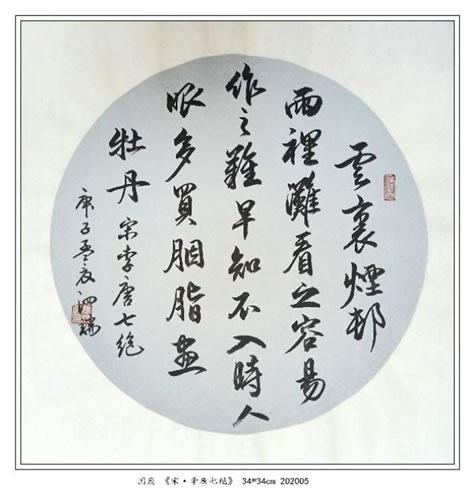 雲裏煙邨
雨裡灘看之容易
作之難早知不入時人
眼多買胭脂畫
牡丹 宋李唐七絕
庚子孟夏
《宋·李唐七绝》 34*34cm 202005